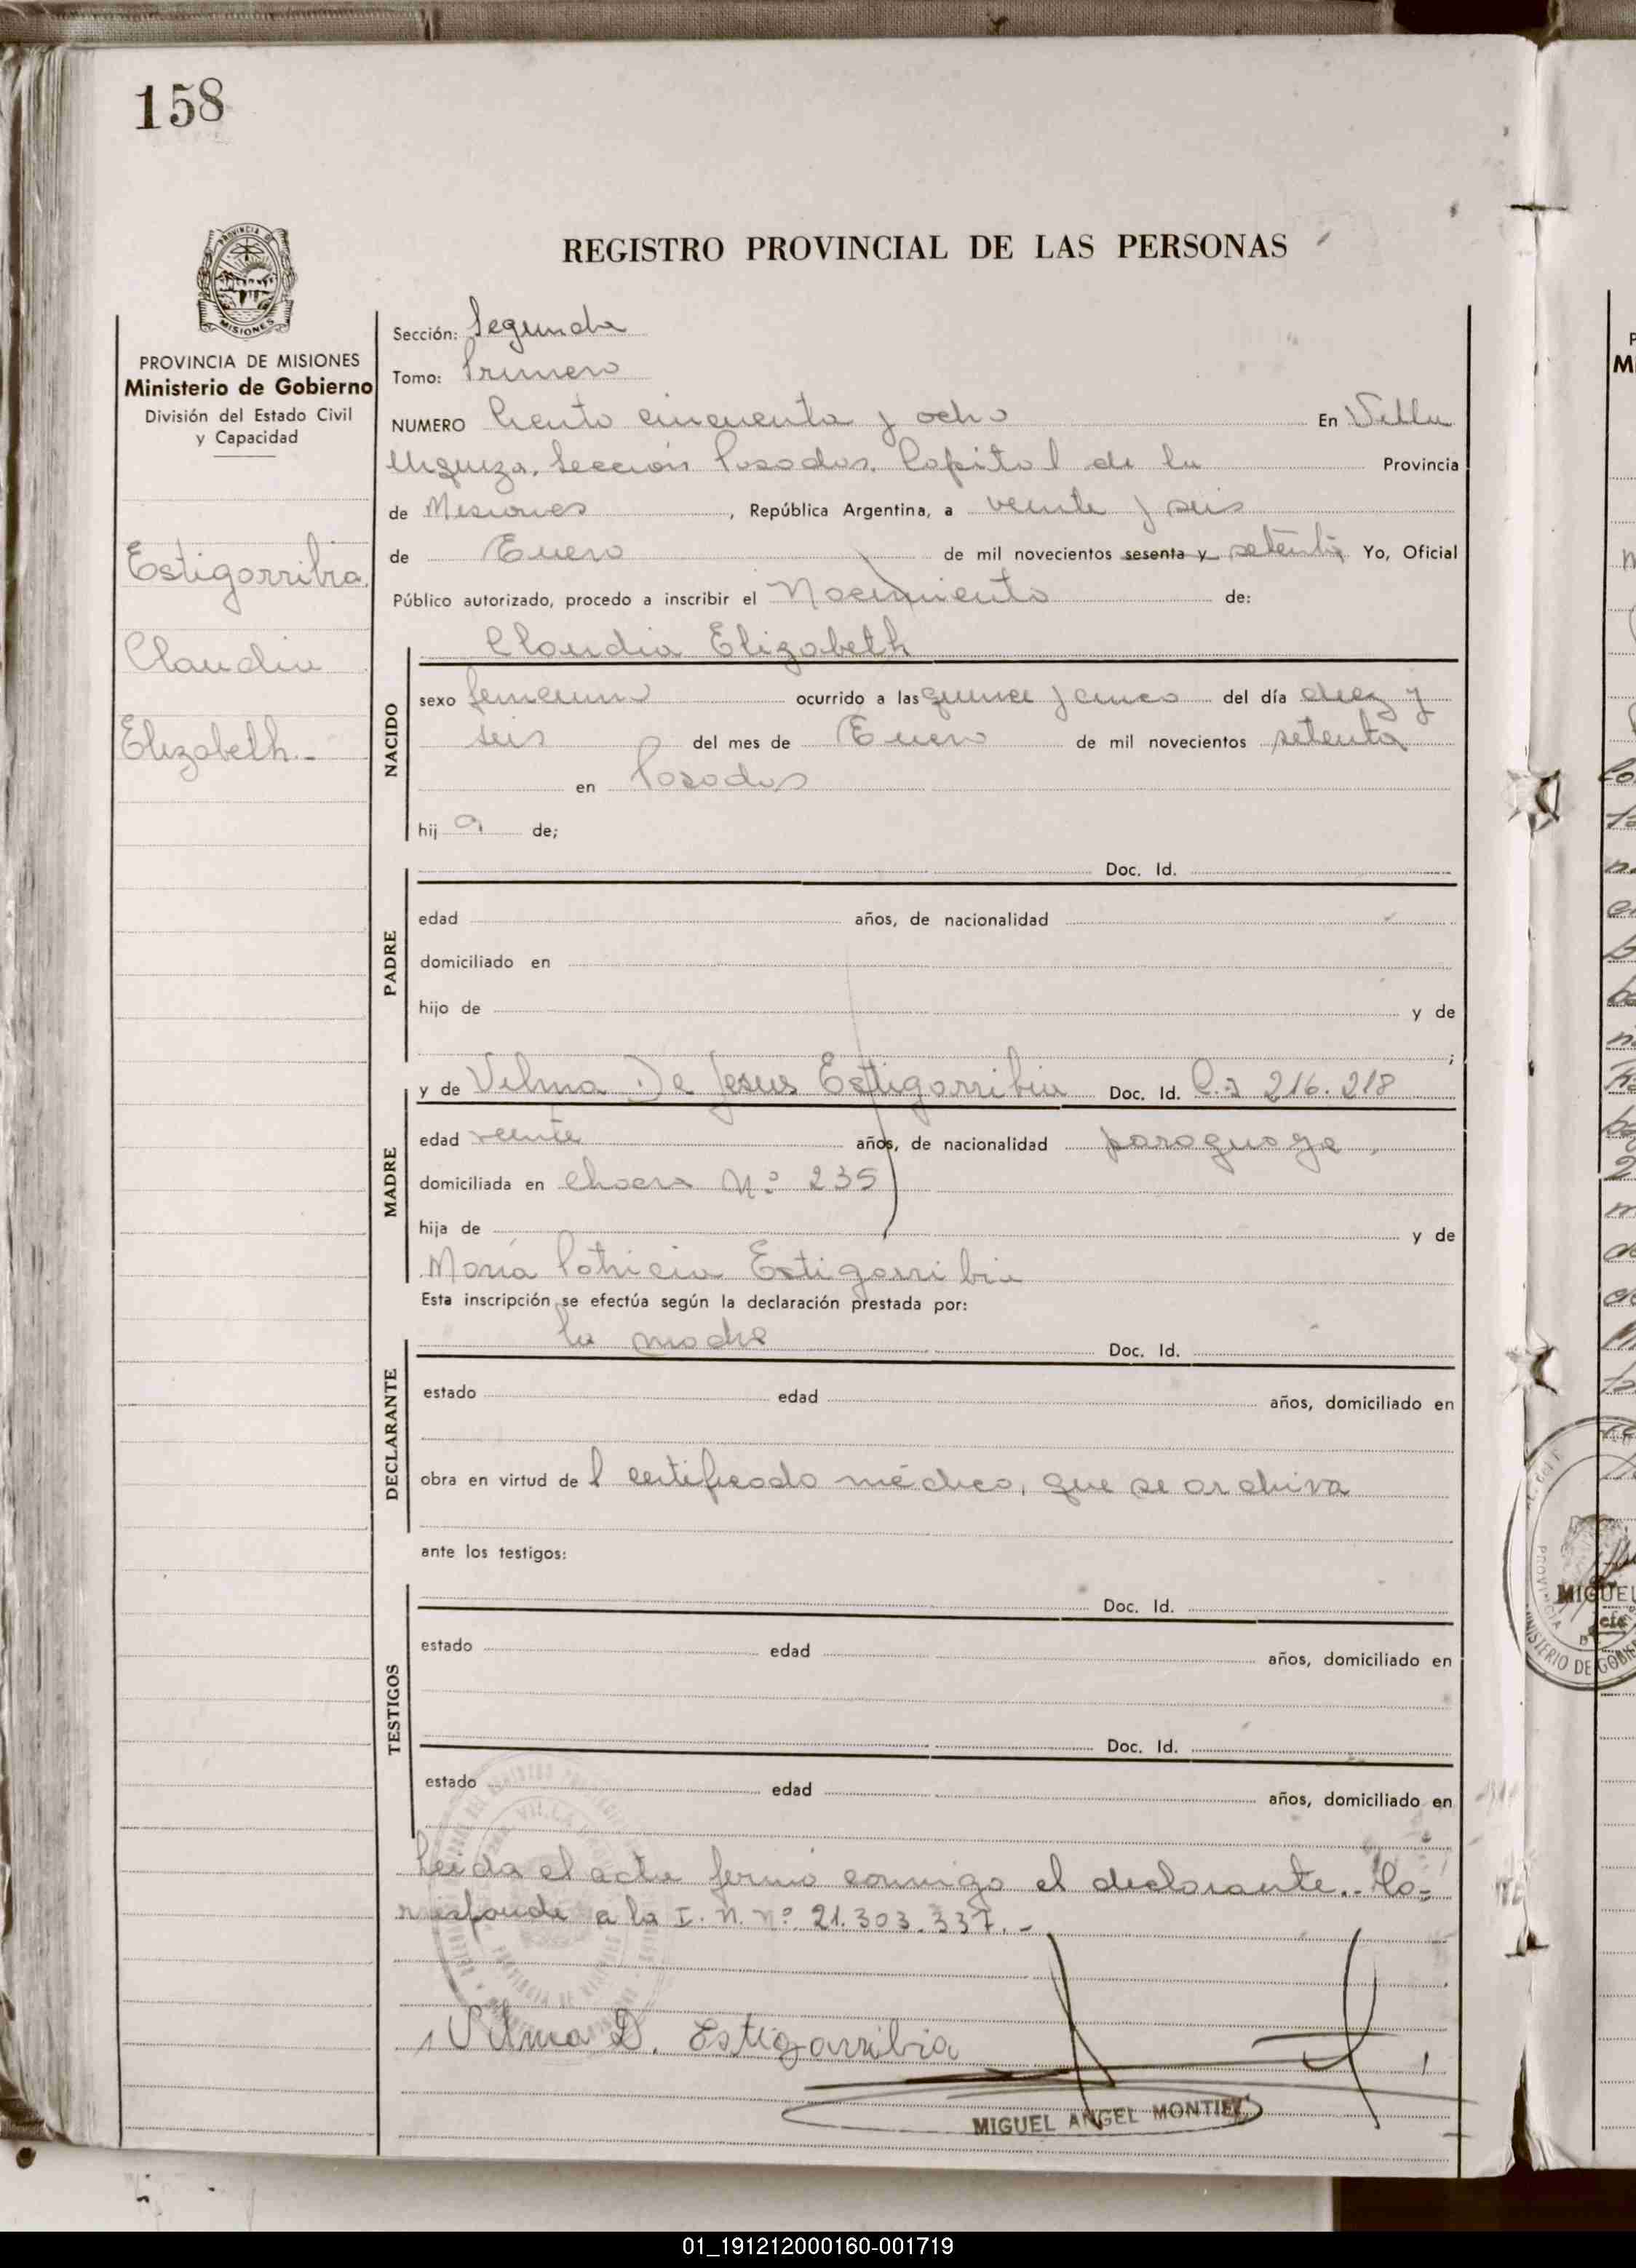 158
PROVINCIA DE
MISIONES
PROVINCIA DE MISIONES
Ministerio de Gobierno
División del Estado Civil
y Capacidad
Estigarribia
Claudia
Elizabeth.-
REGISTRO PROVINCIAL DE LAS PERSONAS
Sección: Segunda
Tomo: Primero
NUMERO Ciento cincuenta y ocho En Villa
Urquiza, Sección Posadas, Capital de la Provincia
de Misiones, República Argentina, a veinte y seis
de Enero de mil novecientos sesenta y setenta Yo, Oficial
Público autorizado, procedo a inscribir el Nacimiento de:
Claudia Elizabeth
NACIDO
sexo femenino ocurrido a las quince y cinco del día diez y
seis del mes de Enero de mil novecientos setenta
en Posadas
hij a de;
PADRE
Doc. Id.
edad años, de nacionalidad
domiciliado en
hijo de y de
;
MADRE
y de Vilma De Jesus Estigarribia Doc. Id. 216.218
edad veinte años, de nacionalidad paraguaya,
domiciliada en Chacra Nº 235
hija de y de
María Patricia Estigarribia
Esta inscripción se efectúa según la declaración prestada por:
DECLARANTE
la madre Doc. Id.
estado edad años, domiciliado en
obra en virtud de l certificado médico, que se archiva
ante los testigos:
TESTIGOS
Doc. Id.
estado edad años, domiciliado en
Doc. Id.
estado edad años, domiciliado en
Leida el acta firmó conmigo el declarante.- Co=
rresponde a la I. N. Nº 21.303.337.-
Vilma D. Estigarribia
MIGUEL ANGEL MONTIEL
MIGUEL
01_191212000160-001719